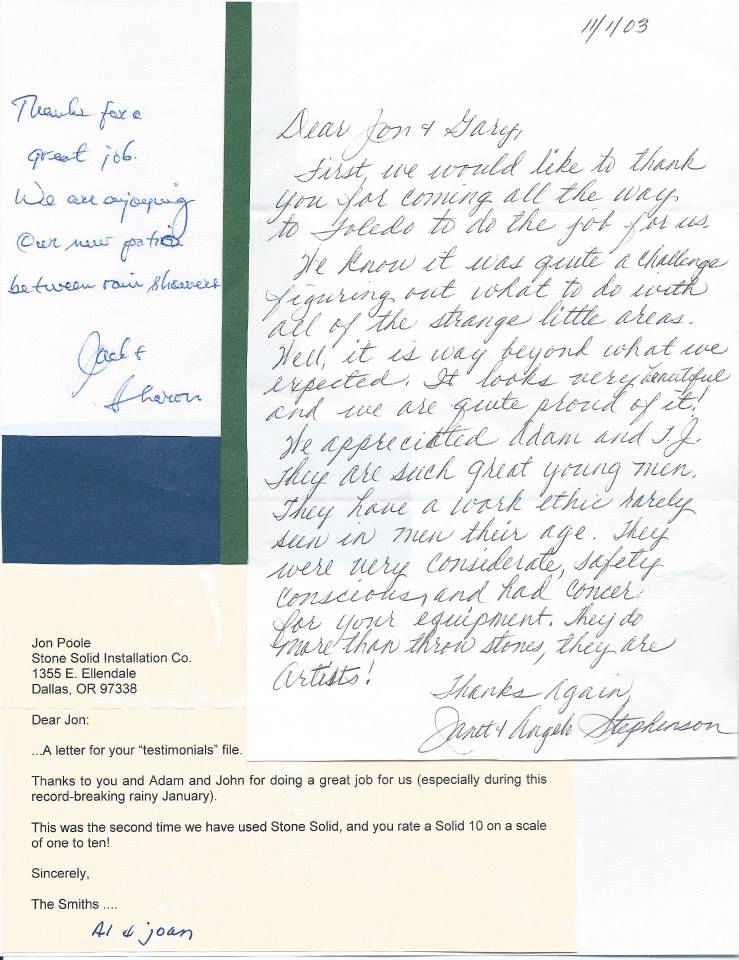 Thanks for a
great job.
We are enjoying
Our new patio
between rain showers
Jack &
Sharon
11/1/03
Dear Jon & Gary,
First, we would like to thank
you for coming all the way
to Toledo to do the job for us.
We know it was quite a challenge
figuring out what to do with
all of the strange little areas.
Well, it is way beyond what we
expected. It looks very beautiful
and we are quite proud of it!
We appreciated Adam and T.J.
They are such great young men.
They have a work ethic rarely
seen in men their age. They
were very considerate, safety
conscious, and had concer
for your equipment. They do
more than throw stones, they are
Artists!
Thanks Again,
Janet & Angelo Stephenson
Jon Poole
Stone Solid Installation Co.
1355 E. Ellendale
Dallas, OR 97338
Dear Jon:
...A letter for your “testimonials” file.
Thanks to you and Adam and John for doing a great job for us (especially during this
record-breaking rainy January).
This was the second time we have used Stone Solid, and you rate a Solid 10 on a scale
of one to ten!
Sincerely,
The Smiths ....
Al & joan